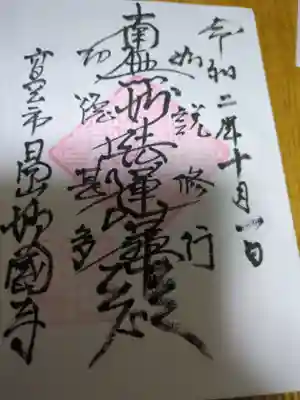 令和二年十月一日
如説修行
南無妙法蓮華經
功徳甚多
富士市
山妙國寺